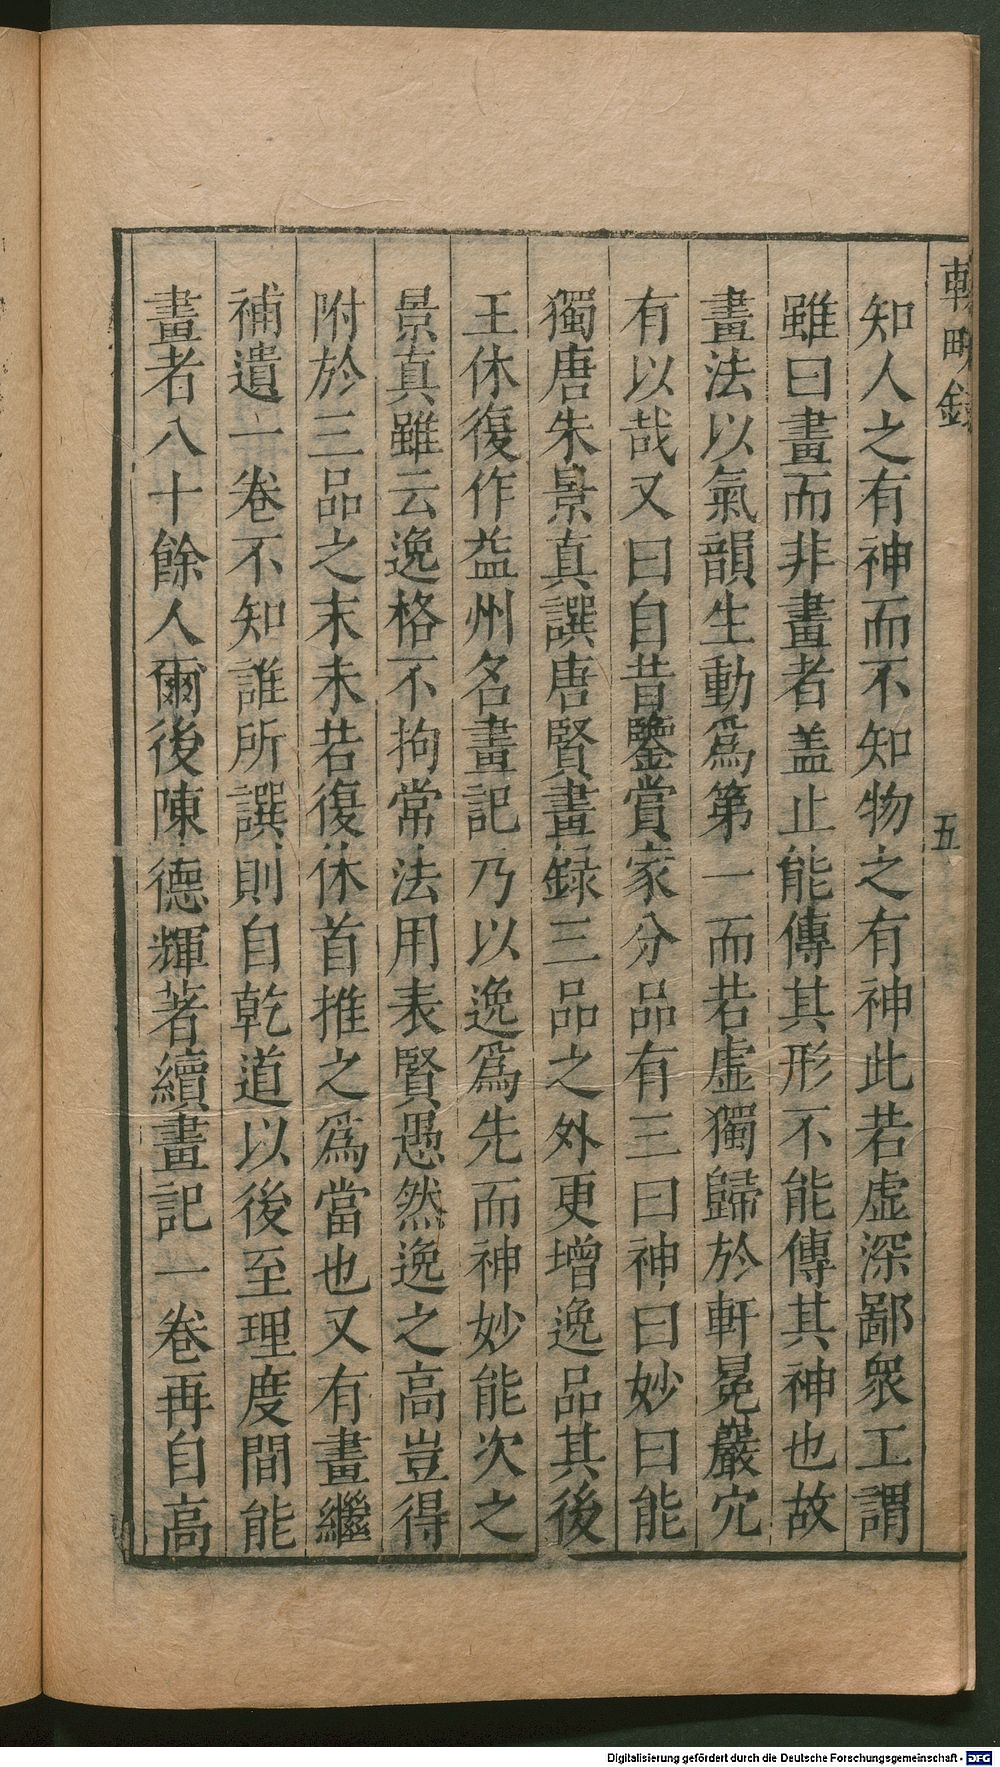 輟畊錄
五
知人之有神而不知物之有神此若虛深鄙衆工謂
雖曰畫而非畫者盖止能傳其形不能傳其神也故
畫法以氣韻生動爲第一而若虛獨歸於軒冕巖穴
有以哉又曰自昔鑒賞家分品有三曰神曰妙曰能
獨唐朱景真譔唐賢畫録三品之外更增逸品其後
王休復作益州名畫記乃以逸爲先而神妙能次之
景真雖云逸格不拘常法用表賢愚然逸之高豈得
附於三品之末未若復休首推之爲當也又有畫繼
補遺一卷不知誰所譔則自乾道以後至理度間能
畫者八十餘人爾後陳德輝著續畫記一卷再自高
Digitalisierung gefördert durch die Deutsche Forschungsgemeinschaft - DFG